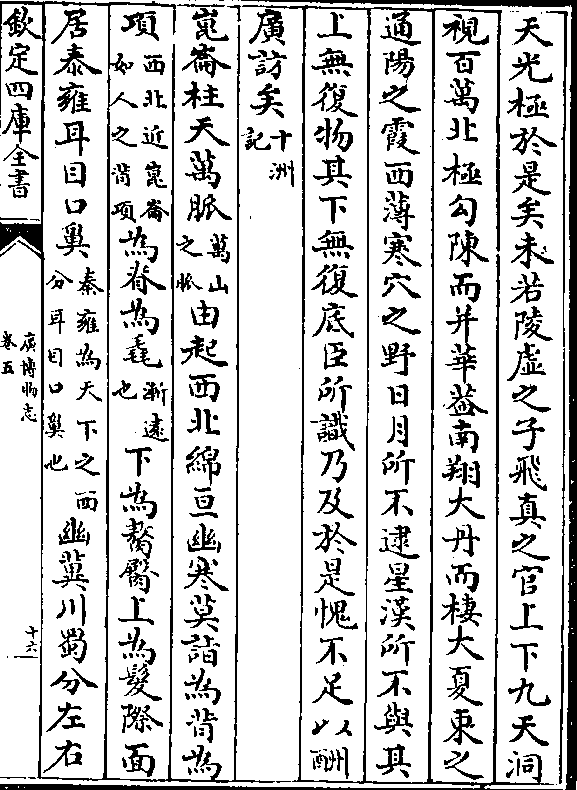 天光極於是矣未若陵虛之子飛真之官上下九天洞
視百萬北極勾陳而并華葢南翔大丹而棲大夏東之
通陽之霞西薄寒穴之野日月所不逮星漢所不與其
上無復物其下無復底臣所識乃及於是愧不足以酬
廣訪矣十洲記
崑崙柱天萬脈萬山之脈由起西北綿亘幽寒莫詣為背為
項西北近崑崙如人之背項為脊為毳漸逺也下為臀上為髮際面
居秦雍耳目口鼻秦雍為天下之西分耳目口鼻也幽冀川蜀分左右
欽定四庫全書
廣博物志
卷五
十六